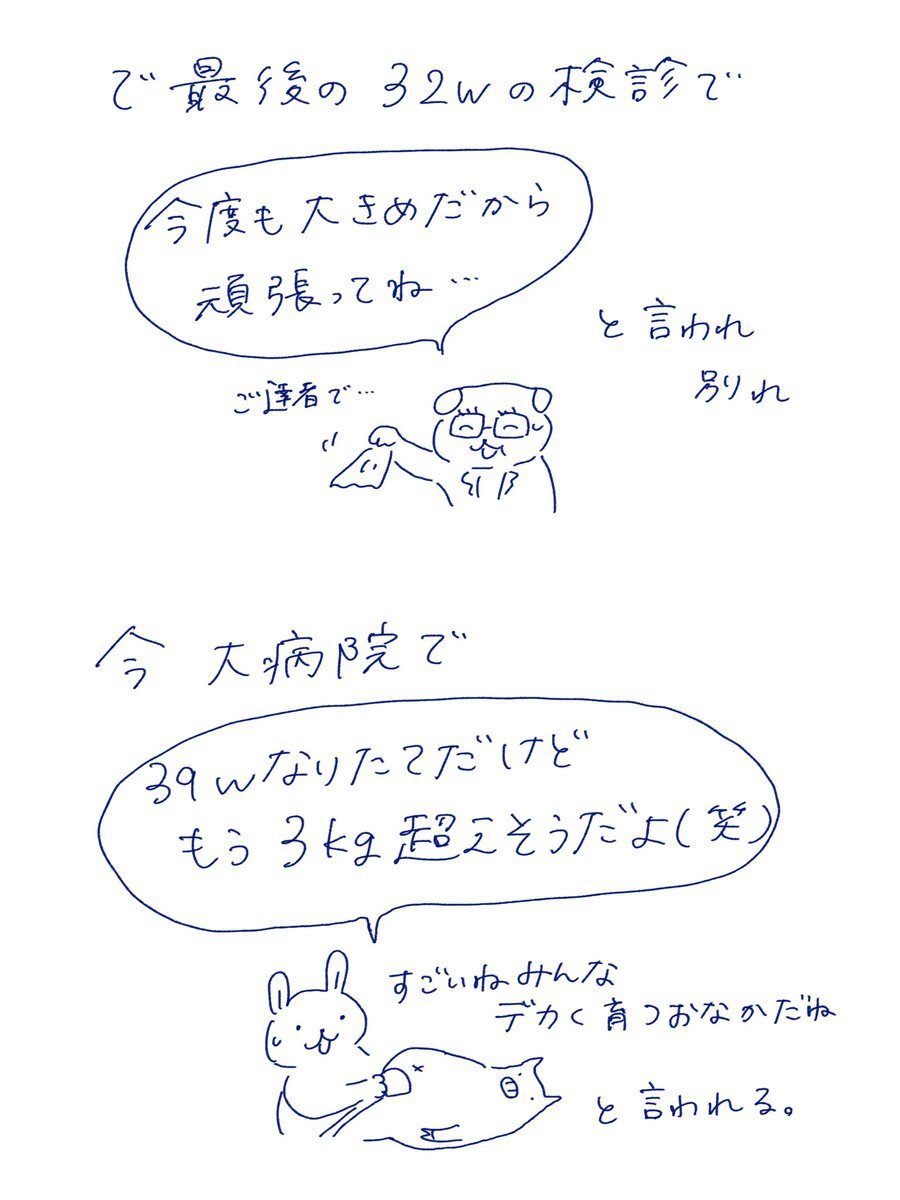 で最後の32wの検診で
今度も大きめだから
頑張ってね…
と言われ
別れ
ご達者で…
今 大病院で
39wなりたてだけど
もう3kg超えそうだよ(笑)
すごいねみんな
デカく育つおなかだね
と言われる。